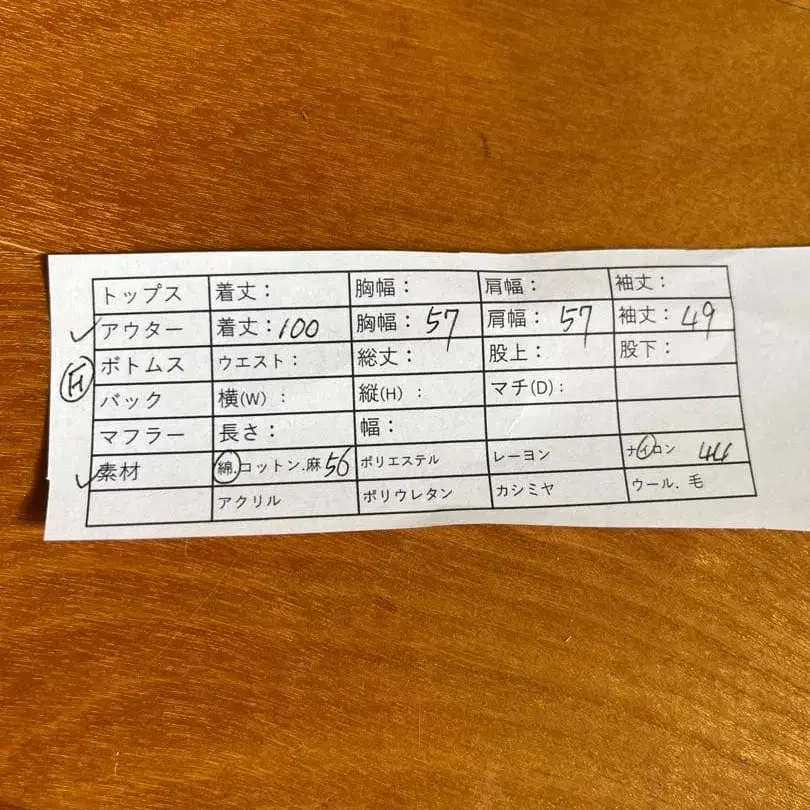 トップス 着丈： 胸幅： 肩幅： 袖丈：
アウター 着丈：100 胸幅：57 肩幅：57 袖丈：49
ボトムス ウエスト： 総丈： 股上： 股下：
バック 横(W)： 縦(H)： マチ(D)：
マフラー 長さ： 幅：
素材 綿.コットン.麻56 ポリエステル レーヨン ナイロン 44
アクリル ポリウレタン カシミヤ ウール.毛